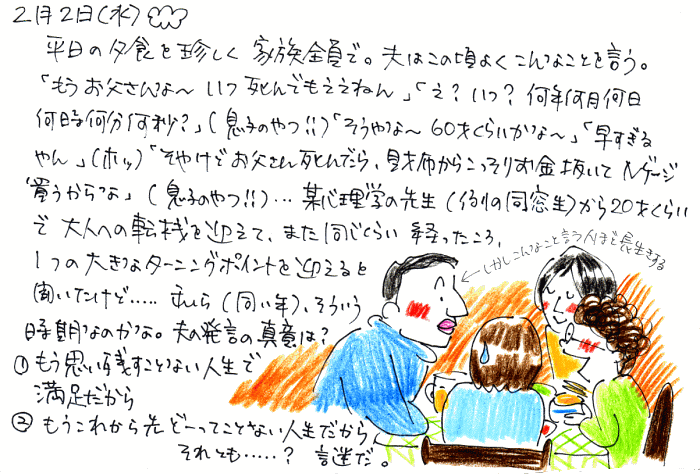 2月2日(水)
平日の夕食を珍しく家族全員で。夫はこの頃よくこんなことを言う。
「もうお父さんな〜いつ死んでもええねん」「え?いつ?何年何月何日
何時何分何秒?」(息子のやつ!!)「そうやな〜60才くらいかな〜」「早すぎる
やん」(ホッ)「そやけどお父さん死んだら、財布からこっそりお金抜いてNゲージ
買うからな」(息子のやつ!!)…某心理学の先生(例の同窓生)から20才くらい
で大人への転機を迎えて、また同じくらい経ったころ、
1つの大きなターニングポイントを迎えると
聞いたけど.....私ら(同い年)、そういう
時期なのかな。夫の発言の真意は?
①もう思い残すことない人生で
満足だから
②もうこれから先どーってことない人生だから
それとも.....?謎だ。
←しかしこんなこと言う人ほど長生きする